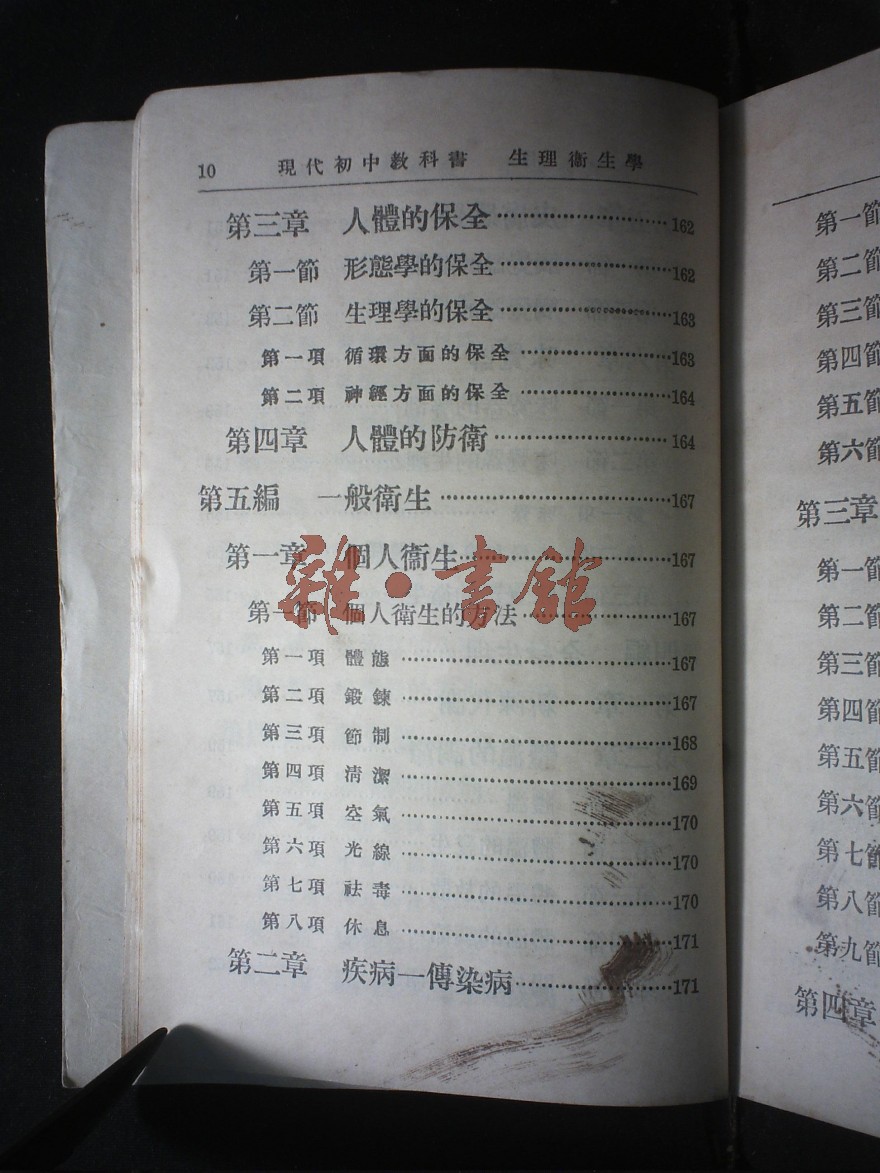 10 現代初中教科書 生理衞生學
第三章 人體的保全……………………162
第一節 形態學的保全……………………162
第二節 生理學的保全……………………163
第一項 循環方面的保全……………………163
第二項 神經方面的保全……………………164
第四章 人體的防衛……………………164
第五編 一般衛生……………………167
第一章 個人衞生……………………167
第一節 個人衛生的方法……………………167
第一項 體態……………………167
第二項 鍛鍊……………………167
第三項 節制……………………168
第四項 淸潔……………………169
第五項 空氣……………………170
第六項 光線……………………170
第七項 祛毒……………………170
第八項 休息……………………171
第二章 疾病—傳染病……………………171
雜·書館
第一節
第二節
第三節
第四節
第五節
第六節
第三章
第一節
第二節
第三節
第四節
第五節
第六節
第七節
第八節
第九節
第四章